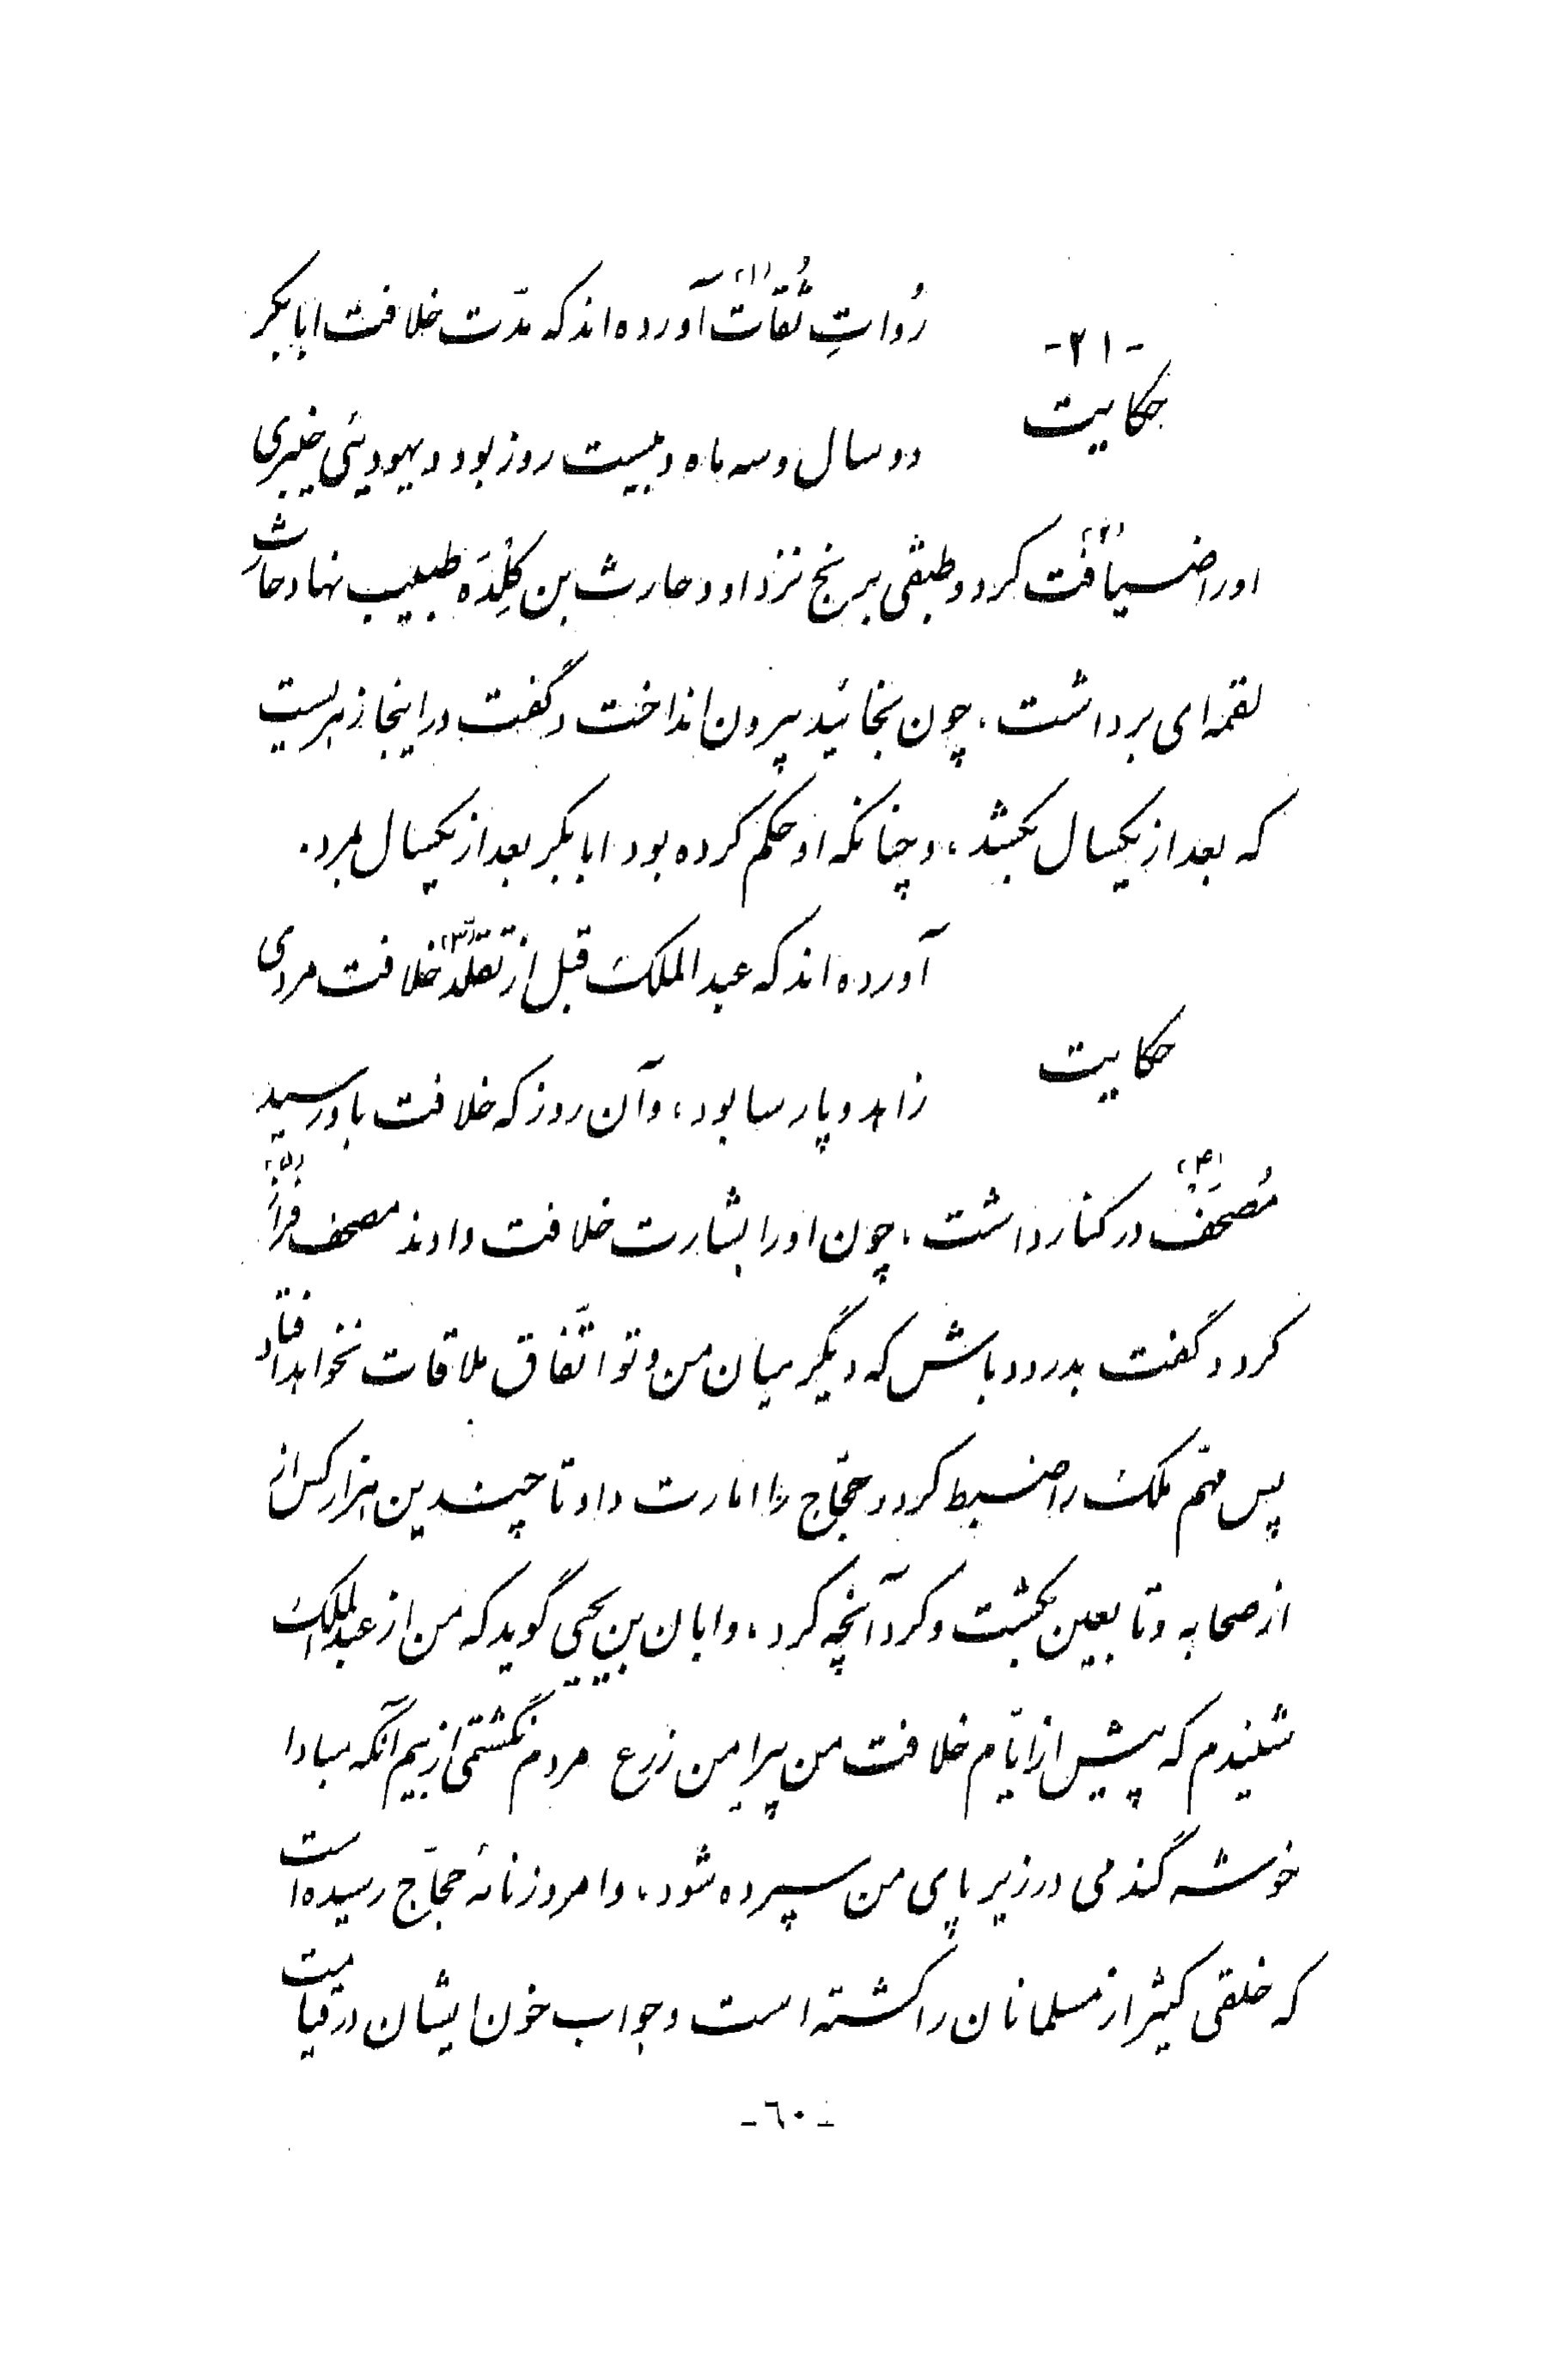 رُواتِ ثُقات(۱) آورده‌اند که مدّت خلافت ابابکر
-۲۱-
حکایت
دو سال و سه ماه و بیست روز بود و یهودیئی خیبری
او را ضیافت(۲) کرد و طبقی برنج نزد او و حارث بن کَلِدَه طبیب نهاد حارث
لقمه‌ای برداشت، چون بخائید بیرون انداخت و گفت در اینجا زهریست
که بعد از یکسال بکشد، و چنانکه او حکم کرده بود ابابکر بعد از یکسال بمرد.
آورده‌اند که عبدالملک قبل از تقلّد(۳) خلافت مردی
حکایت
زاهد و پارسا بود، و آن روز که خلافت باو رسید
مُصحَف(۴) در کنار داشت، چون او را بشارت خلافت دادند مصحف فراز(۵)
کرد و گفت بدرود باش که دیگر میان من و تو اتّفاق ملاقات نخواهد افتاد
پس مهمّ ملک را ضبط کرد و حجّاج را امارت داد تا چندین هزار کس از
از صحابه و تابعین بکشت و کرد آنچه کرد، و ابان بن یحیی گوید که من از عبدالملک
شنیدم که پیش از ایّام خلافت من پیرامن زرع مردم نگشتمی از بیم آنکه مبادا
خوشه گندمی در زیر پای من سپرده شود، و امروز نامهٔ حجّاج رسیده است
که خلقی کثیر از مسلمانان را کشته است و جواب خون ایشان در قیامت
-٦٠-